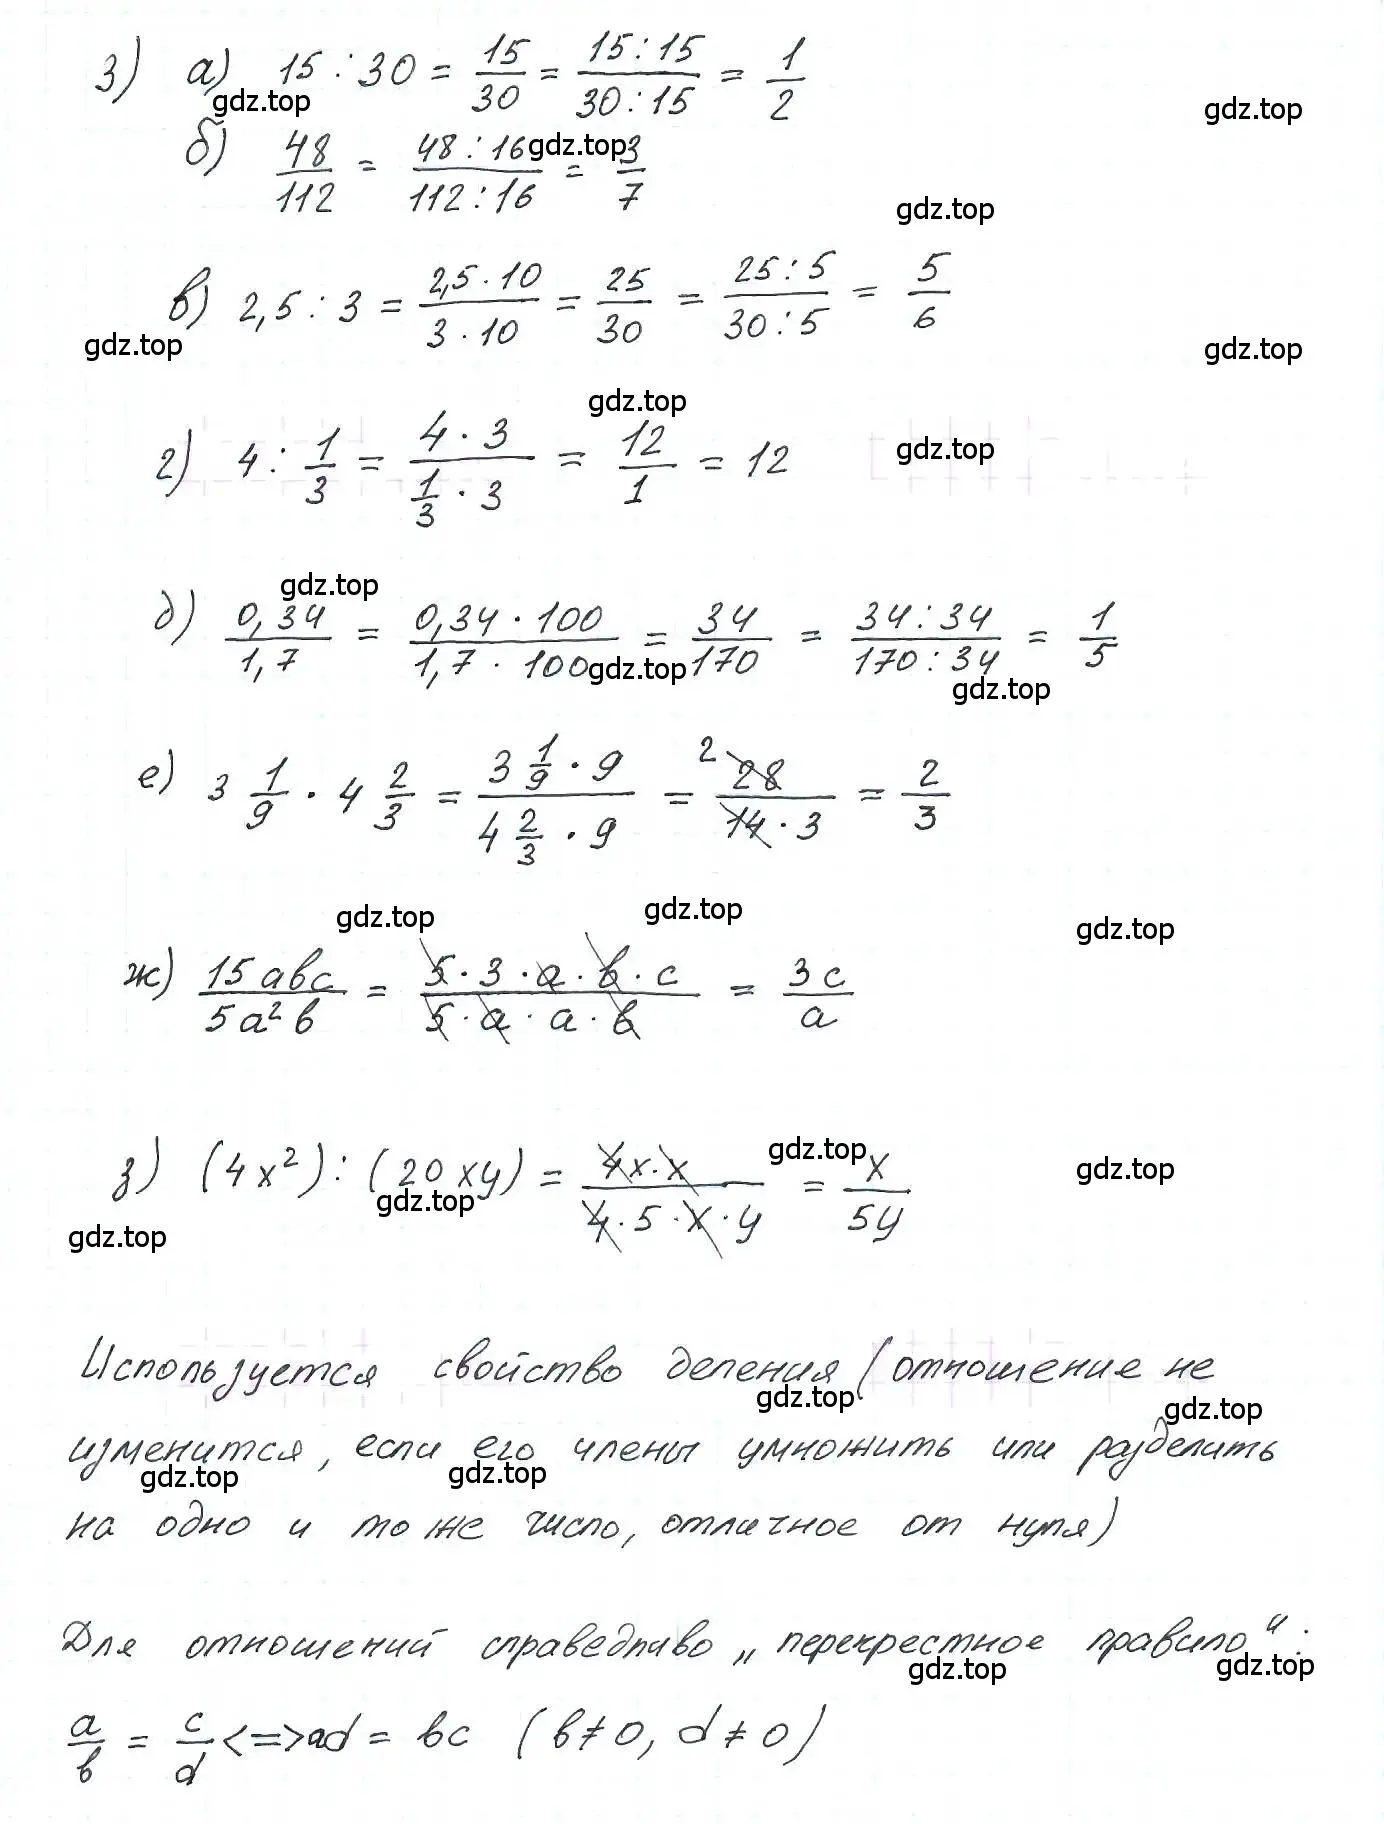 3) а) 15 : 30 = 15/30 = (15:15)/(30:15) = 1/2
gdz.top gdz.top
б) 48/112 = (48:16)/(112:16) = 3/7
gdz.top
gdz.top
в) 2,5 : 3 = (2,5 · 10)/(3 · 10) = 25/30 = (25:5)/(30:5) = 5/6
gdz.top gdz.top
gdz.top
г) 4 : 1/3 = (4 · 3)/(1/3 · 3) = 12/1 = 12
gdz.top
gdz.top
д) 0,34/1,7 = (0,34 · 100)/(1,7 · 100) = 34/170 = (34:34)/(170:34) = 1/5
gdz.top gdz.top
е) 3 1/9 · 4 2/3 = (3 1/9 · 9)/(4 2/3 · 9) = 2 28/(14 · 3) = 2/3
gdz.top gdz.top gdz.top
ж) 15abc/5a²b = (5 · 3 · a · b · c)/(5 · a · a · b) = 3c/a
з) (4x²) : (20xy) = (4x · x)/(4 · 5 · x · y) = x/5y
gdz.top gdz.top
gdz.top gdz.top
Используется свойство деления (отношение не
gdz.top gdz.top
изменится, если его члены умножить или разделить
gdz.top gdz.top
на одно и то же число, отличное от нуля)
Для отношений справедливо „перекрестное правило“:
gdz.top gdz.top
a/b = c/d <=> ad = bc (b≠0, d≠0)